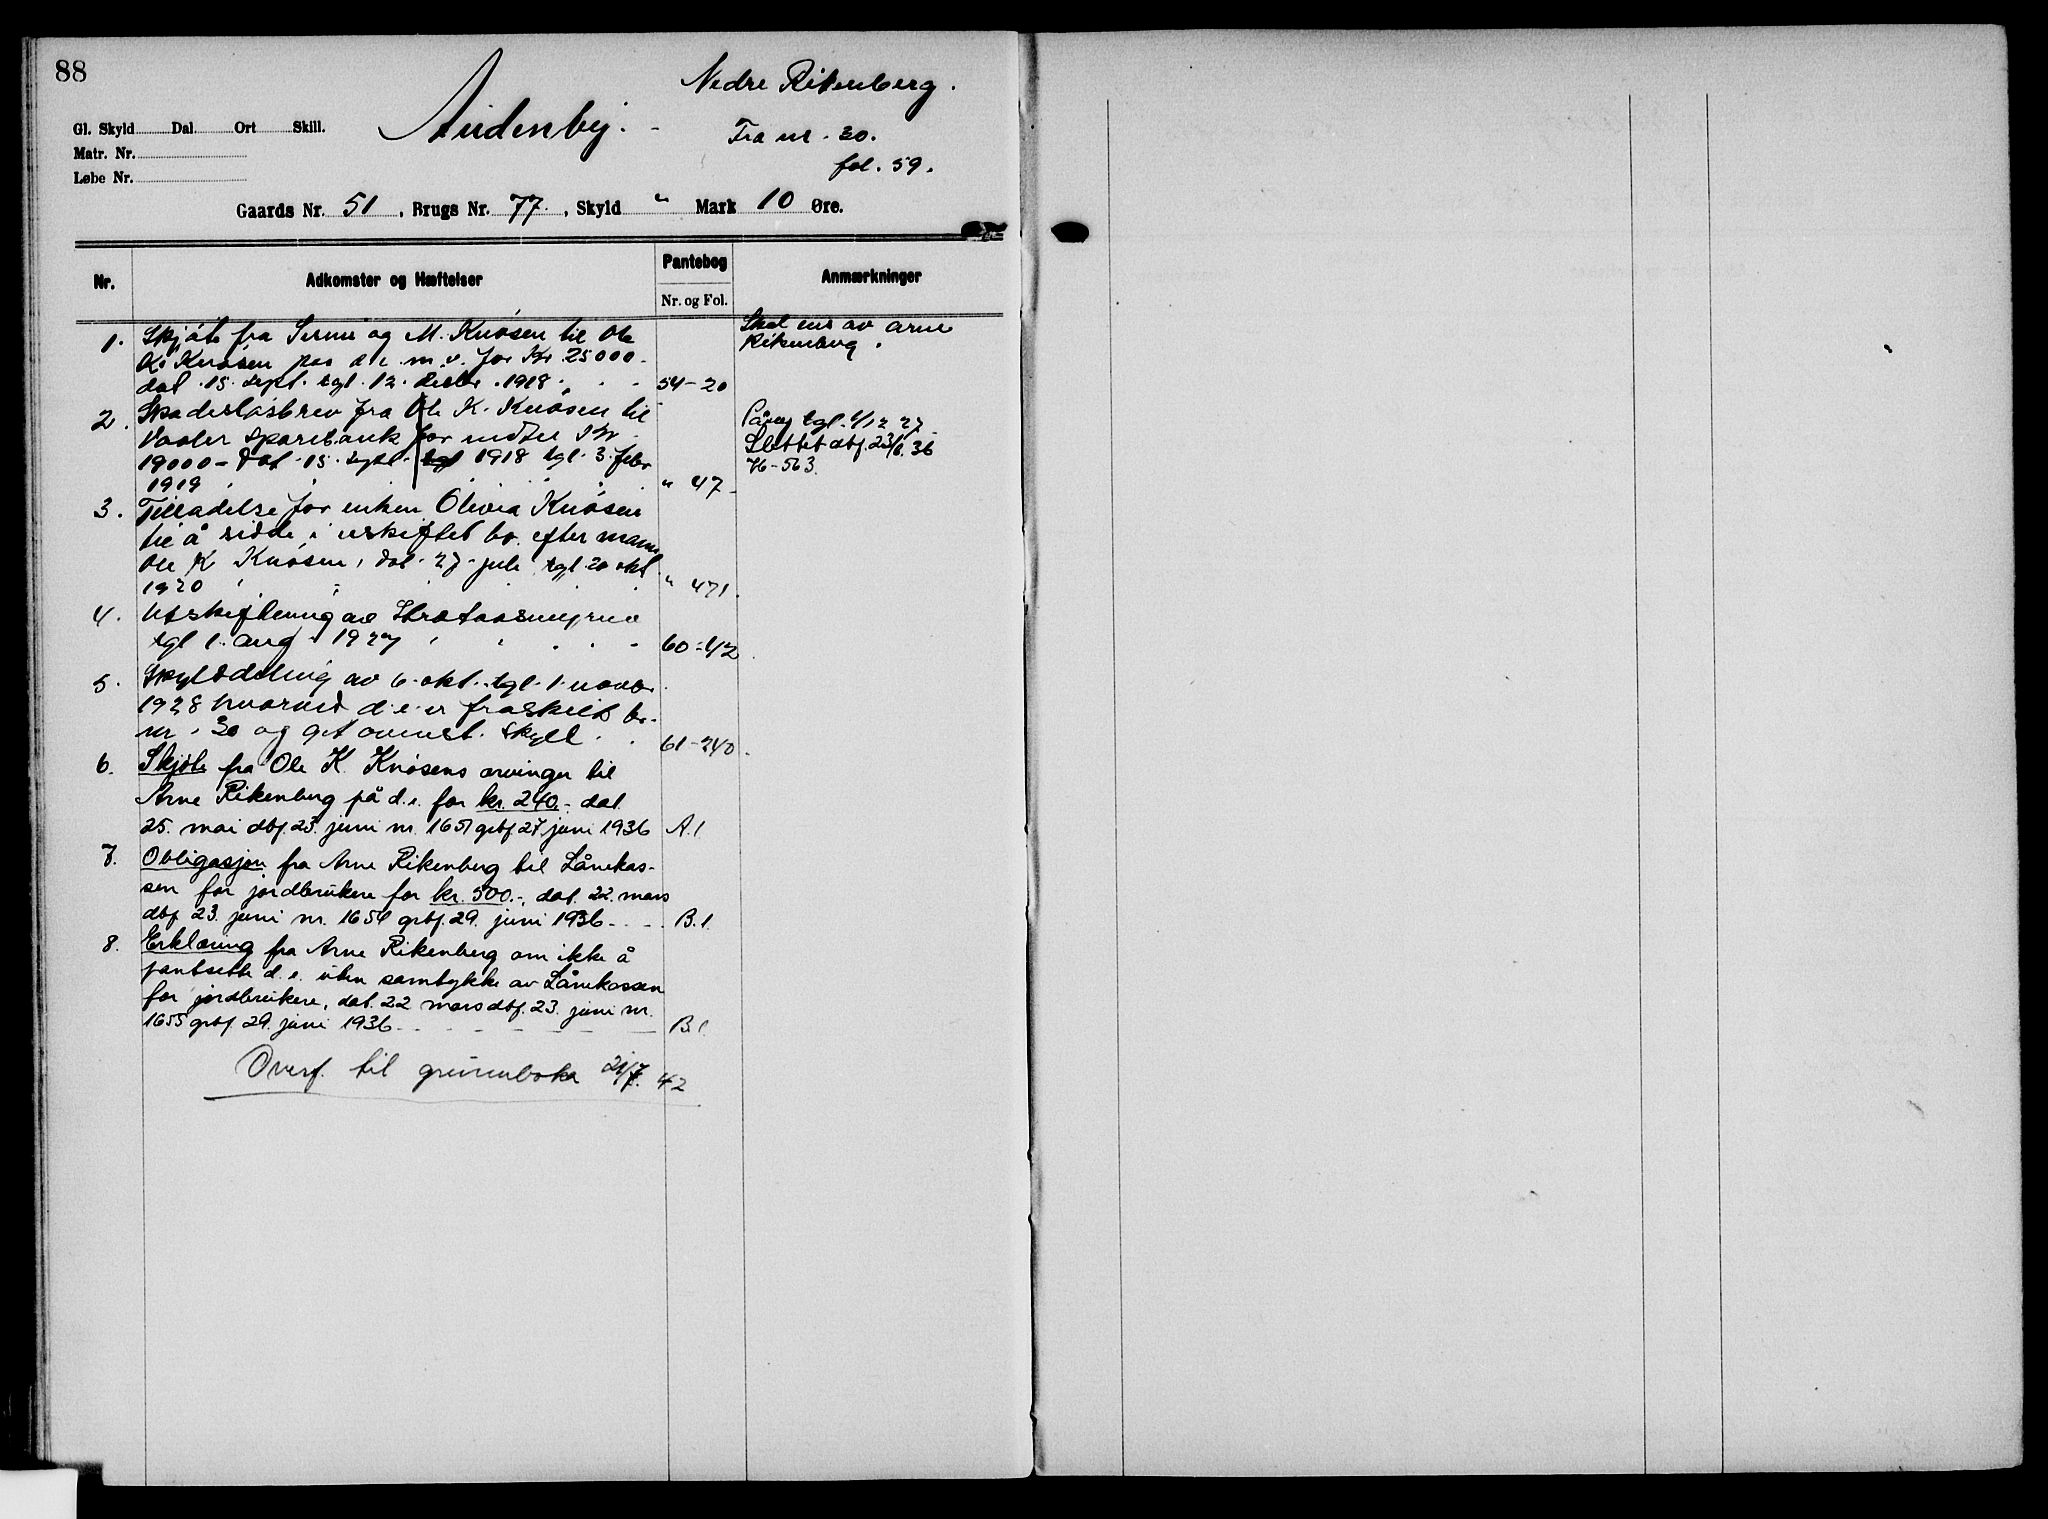 88
Nedre Rikenberg.
Gl. Skyld Dal. Ort Skill.
Fra nr. 30.
Matr. Nr.
fol. 59.
Løbe Nr.
Gaards Nr. 51, Brugs Nr. 77, Skyld " Mark 10 Øre.
Nr. Adkomster og Hæftelser Pantebog Anmærkninger
Nr. og Fol.
1. Skjøte fra og M. Knøsen til Ole
K. Knøsen paa d. e. m. v. for Kr. 25000.
dat. 15. sept. tgl. 12. 1918. 54-20
Skal eies av Arne
Rikenberg.
2. Skadesløsbrev fra Ole K. Knøsen til
Vaaler Sparebank for indtil Kr
19000- dat. 15. sept. tgl 1918 tgl. 3. febr
1919 " 47
tgl. 27
Slettet dbf. 23/6. 36
76-563.
3. Tilladelse for enken Olivia Knøsen
til å sidde i uskiftet bo efter mann
Ole K Knøsen, dat. 27. juli tgl 20 okt
1920 " 471.
4. Utskiftning av
tgl 1. aug 1927 60-42
5. Skylddeling av 6. okt. tgl. 1. novbr.
1928 hvorved d. e. er fraskilt br.
nr. 30 og git ovenst. skyld. 61-240.
6. Skjøte fra Ole K. Knøsens arvinger til
Arne Rikenberg på d. e. for kr. 240.- dat.
25. mai dbf. 23. juni nr. 1651 grbf. 27 juni 1936 A.1
7. Obligasjon fra Arne Rikenberg til Lånekas-
sen for jordbrukere for kr. 500.-, dat. 22. mars
dbf 23. juni nr. 1654 grbf. 29. juni 1936 B.1.
8. Erklæring fra Arne Rikenberg om ikke å
pantsette d. e. uten samtykke av Lånekassen
for jordbrukere, dat. 22 mars dbf. 23. juni nr.
1655 grbf. 29. juni 1936 B.1
Overf. til grunnboka 21/7. 42